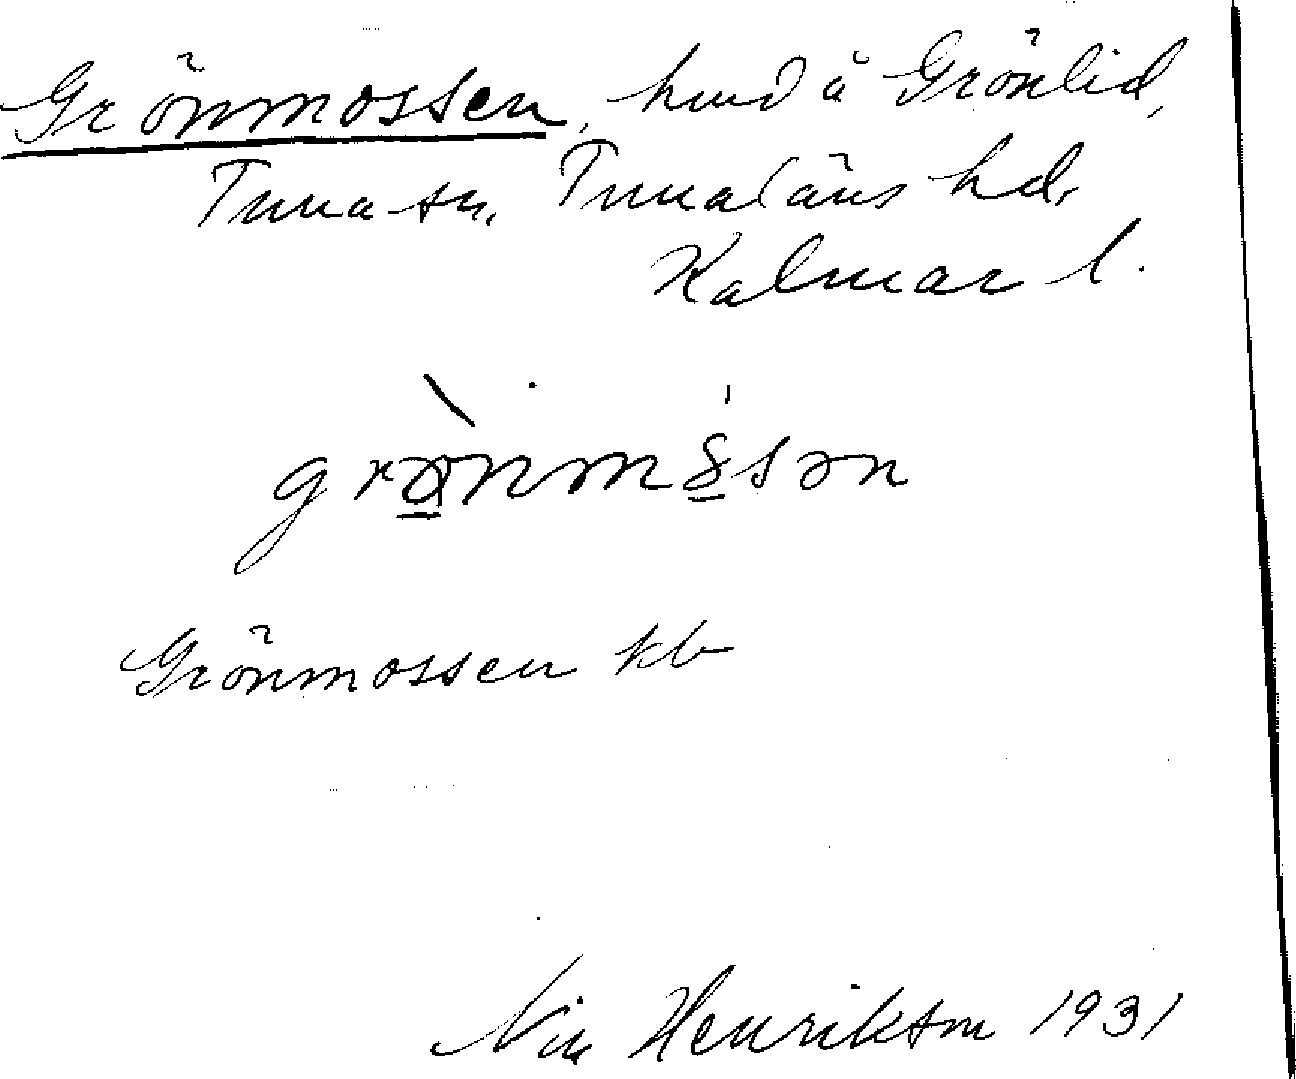 Grönmossen, hmd å Grönlid,
Tuna sn, Tunaläns hd,
Kalmar l.
grö̀nmósən
Grönmossen kb
Henrikson 1931